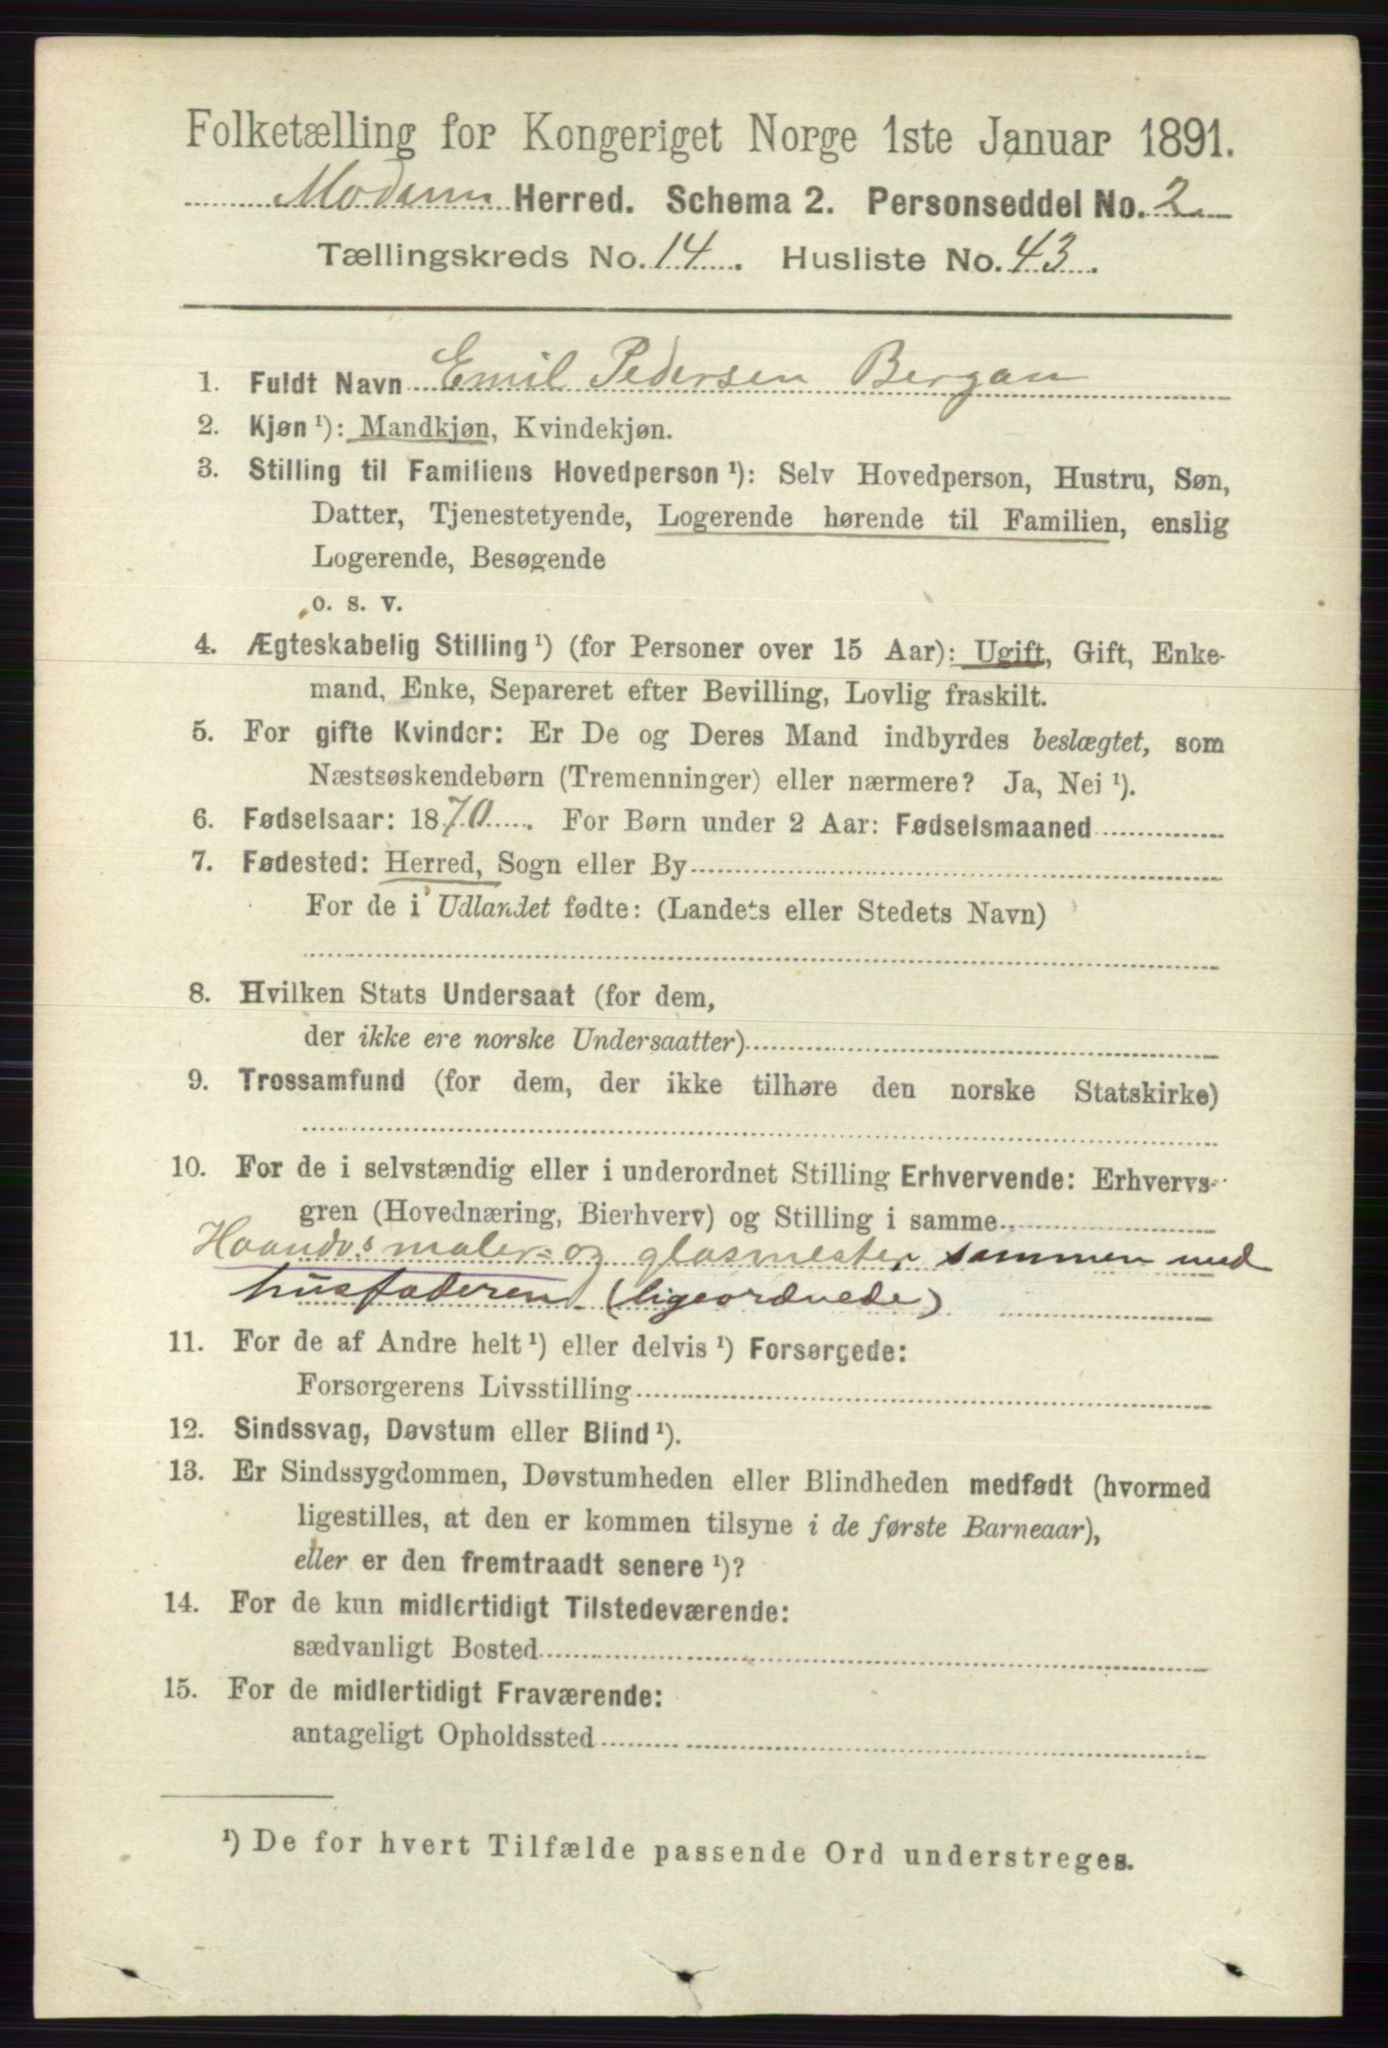 Folketælling for Kongeriget Norge 1ste Januar 1891.
Modum Herred. Schema 2. Personseddel No. 2
Tællingskreds No. 14. Husliste No. 43.
1. Fuldt Navn Emil Pedersen Bergan
2. Kjøn ¹): Mandkjøn, Kvindekjøn.
3. Stilling til Familiens Hovedperson ¹): Selv Hovedperson, Hustru, Søn,
Datter, Tjenestetyende, Logerende hørende til Familien, enslig
Logerende, Besøgende
o. s. v.
4. Ægteskabelig Stilling ¹) (for Personer over 15 Aar): Ugift, Gift, Enke-
mand, Enke, Separeret efter Bevilling, Lovlig fraskilt.
5. For gifte Kvinder: Er De og Deres Mand indbyrdes beslægtet, som
Næstsøskendebørn (Tremenninger) eller nærmere? Ja, Nei ¹).
6. Fødselsaar: 1870. For Børn under 2 Aar: Fødselsmaaned
7. Fødested: Herred, Sogn eller By
For de i Udlandet fødte: (Landets eller Stedets Navn)
8. Hvilken Stats Undersaat (for dem,
der ikke ere norske Undersaatter)
9. Trossamfund (for dem, der ikke tilhøre den norske Statskirke)
10. For de i selvstændig eller i underordnet Stilling Erhvervende: Erhvervs-
gren (Hovednæring, Bierhverv) og Stilling i samme
Haandv.smaler- og glasmester sammen med
husfaderen (ligeordnede)
11. For de af Andre helt ¹) eller delvis ¹) Forsørgede:
Forsørgerens Livsstilling
12. Sindssvag, Døvstum eller Blind ¹).
13. Er Sindssygdommen, Døvstumheden eller Blindheden medfødt (hvormed
ligestilles, at den er kommen tilsyne i de første Barneaar),
eller er den fremtraadt senere ¹)?
14. For de kun midlertidigt Tilstedeværende:
sædvanligt Bosted
15. For de midlertidigt Fraværende:
antageligt Opholdssted
¹) De for hvert Tilfælde passende Ord understreges.